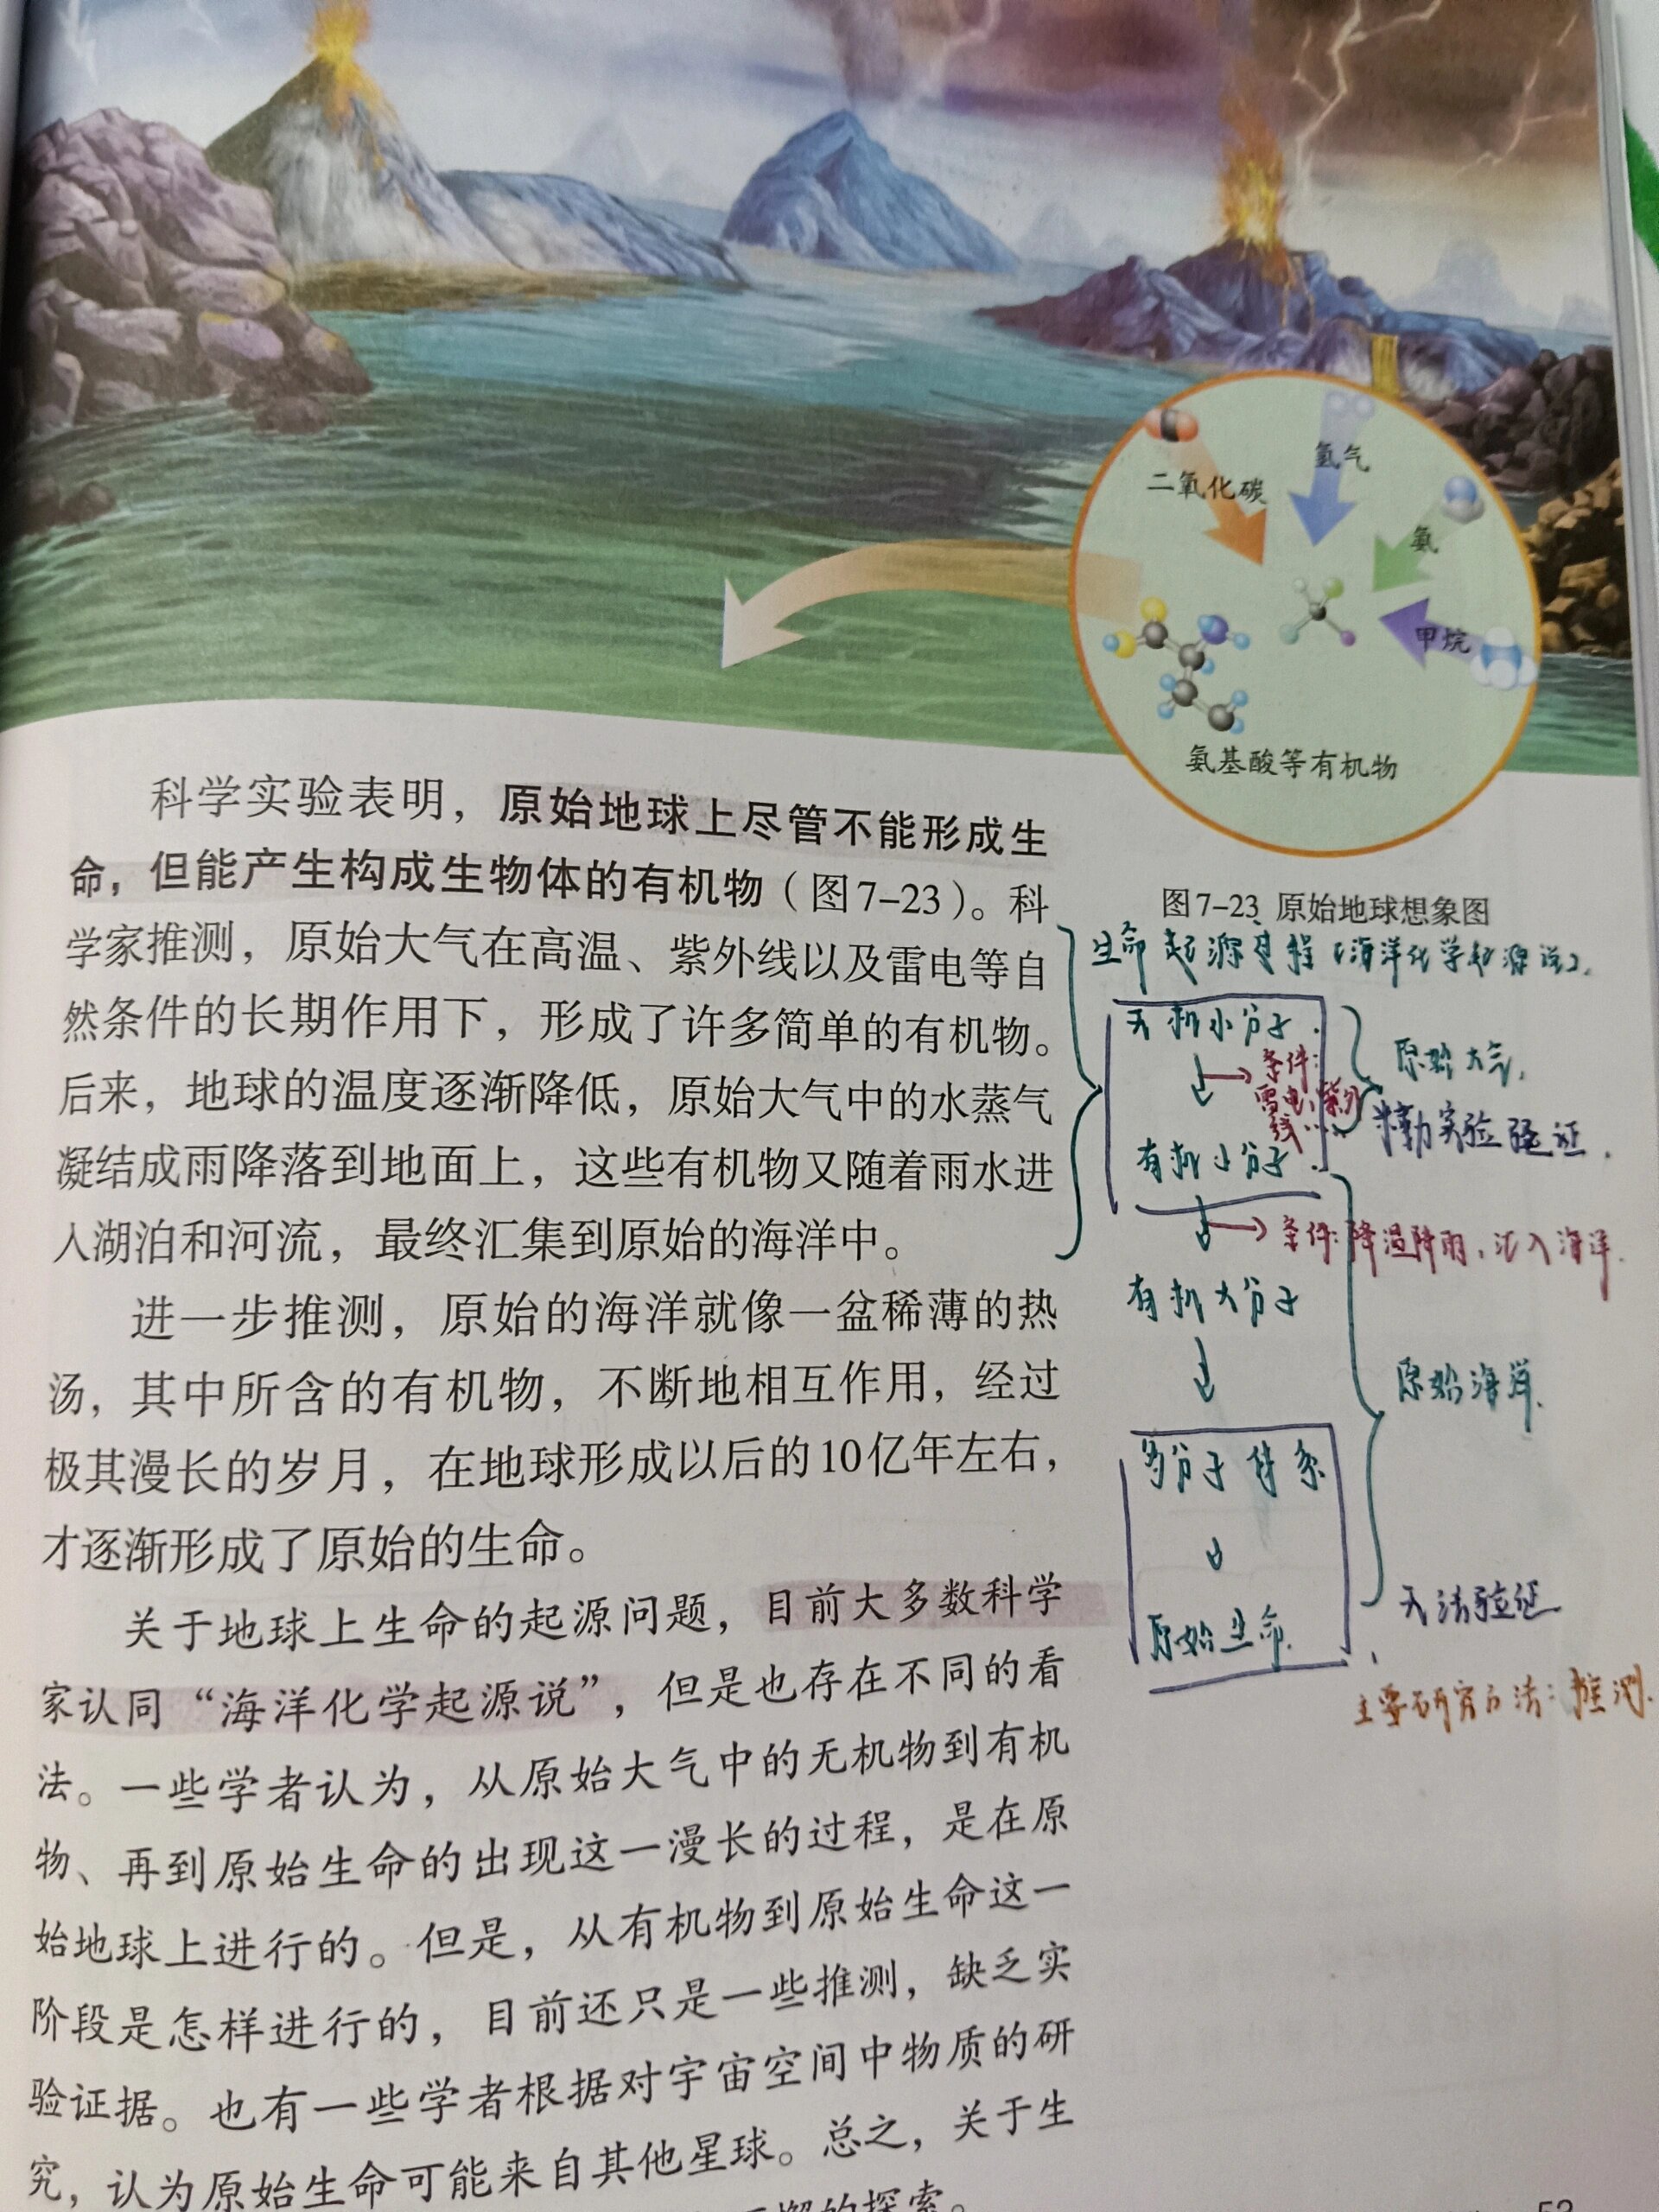 二氧化碳
氢气
氨
甲烷
氨基酸等有机物
图7-23 原始地球想象图
科学实验表明，原始地球上尽管不能形成生
命，但能产生构成生物体的有机物（图7-23）。科
学家推测，原始大气在高温、紫外线以及雷电等自
然条件的长期作用下，形成了许多简单的有机物。
后来，地球的温度逐渐降低，原始大气中的水蒸气
凝结成雨降落到地面上，这些有机物又随着雨水进
入湖泊和河流，最终汇集到原始的海洋中。
进一步推测，原始的海洋就像一盆稀薄的热
汤，其中所含的有机物，不断地相互作用，经过
极其漫长的岁月，在地球形成以后的10亿年左右，
才逐渐形成了原始的生命。
关于地球上生命的起源问题，目前大多数科学
家认同“海洋化学起源说”，但是也存在不同的看
法。一些学者认为，从原始大气中的无机物到有机
物、再到原始生命的出现这一漫长的过程，是在原
始地球上进行的。但是，从有机物到原始生命这一
阶段是怎样进行的，目前还只是一些推测，缺乏实
验证据。也有一些学者根据对宇宙空间中物质的研
究，认为原始生命可能来自其他星球。总之，关于生
的探索。
生命起源过程（海洋化学起源说）.
无机小分子.
条件:
雷电,紫外
线……
原始大气,
米勒实验验证.
有机小分子.
条件:降温降雨,汇入海洋.
有机大分子
原始海洋.
多分子体系
原始生命.
无法验证
主要研究方法:推测.
53